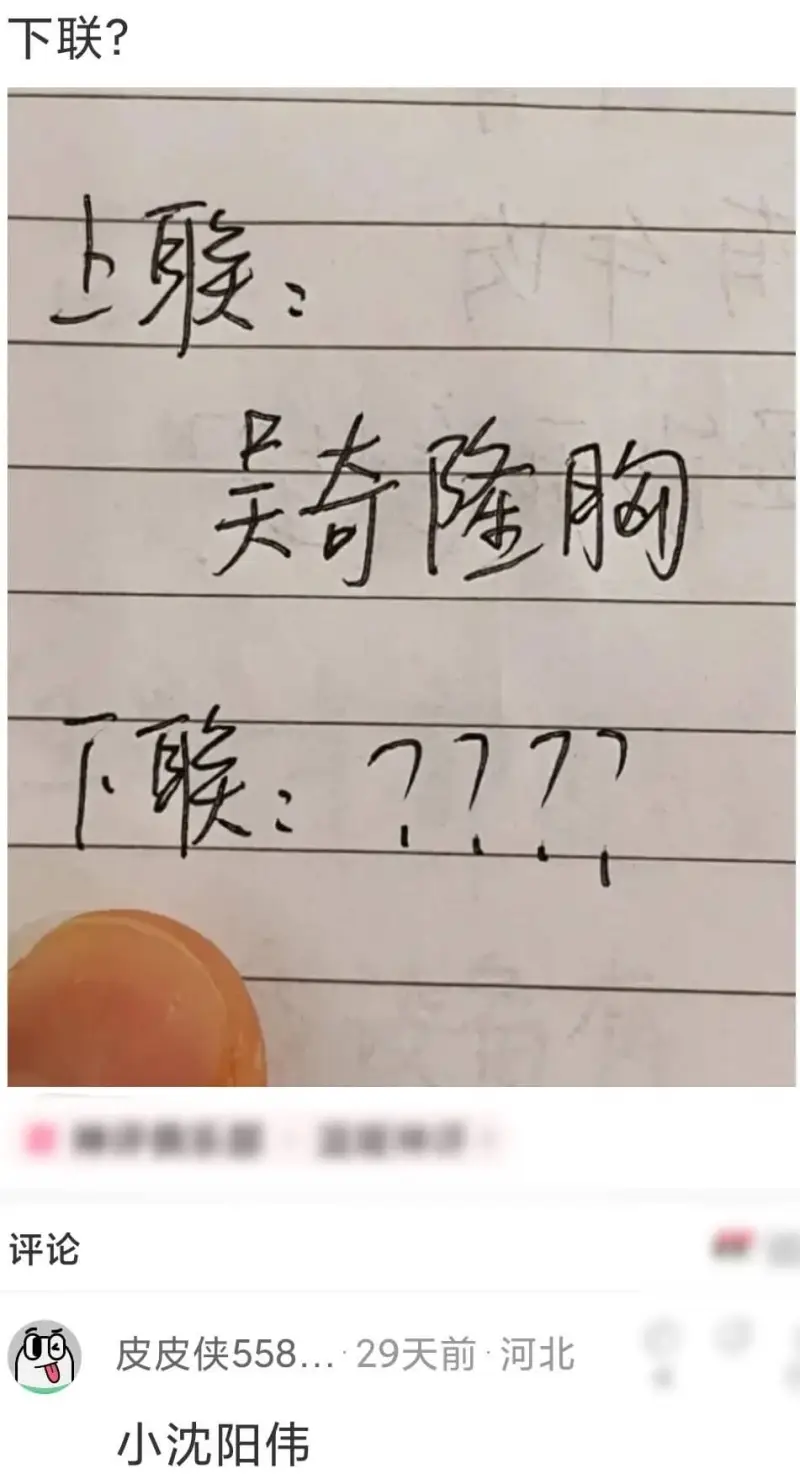 下联?
上联：
吴奇隆胸
下联：？？？？
评论
皮皮侠558...·29天前·河北
小沈阳伟